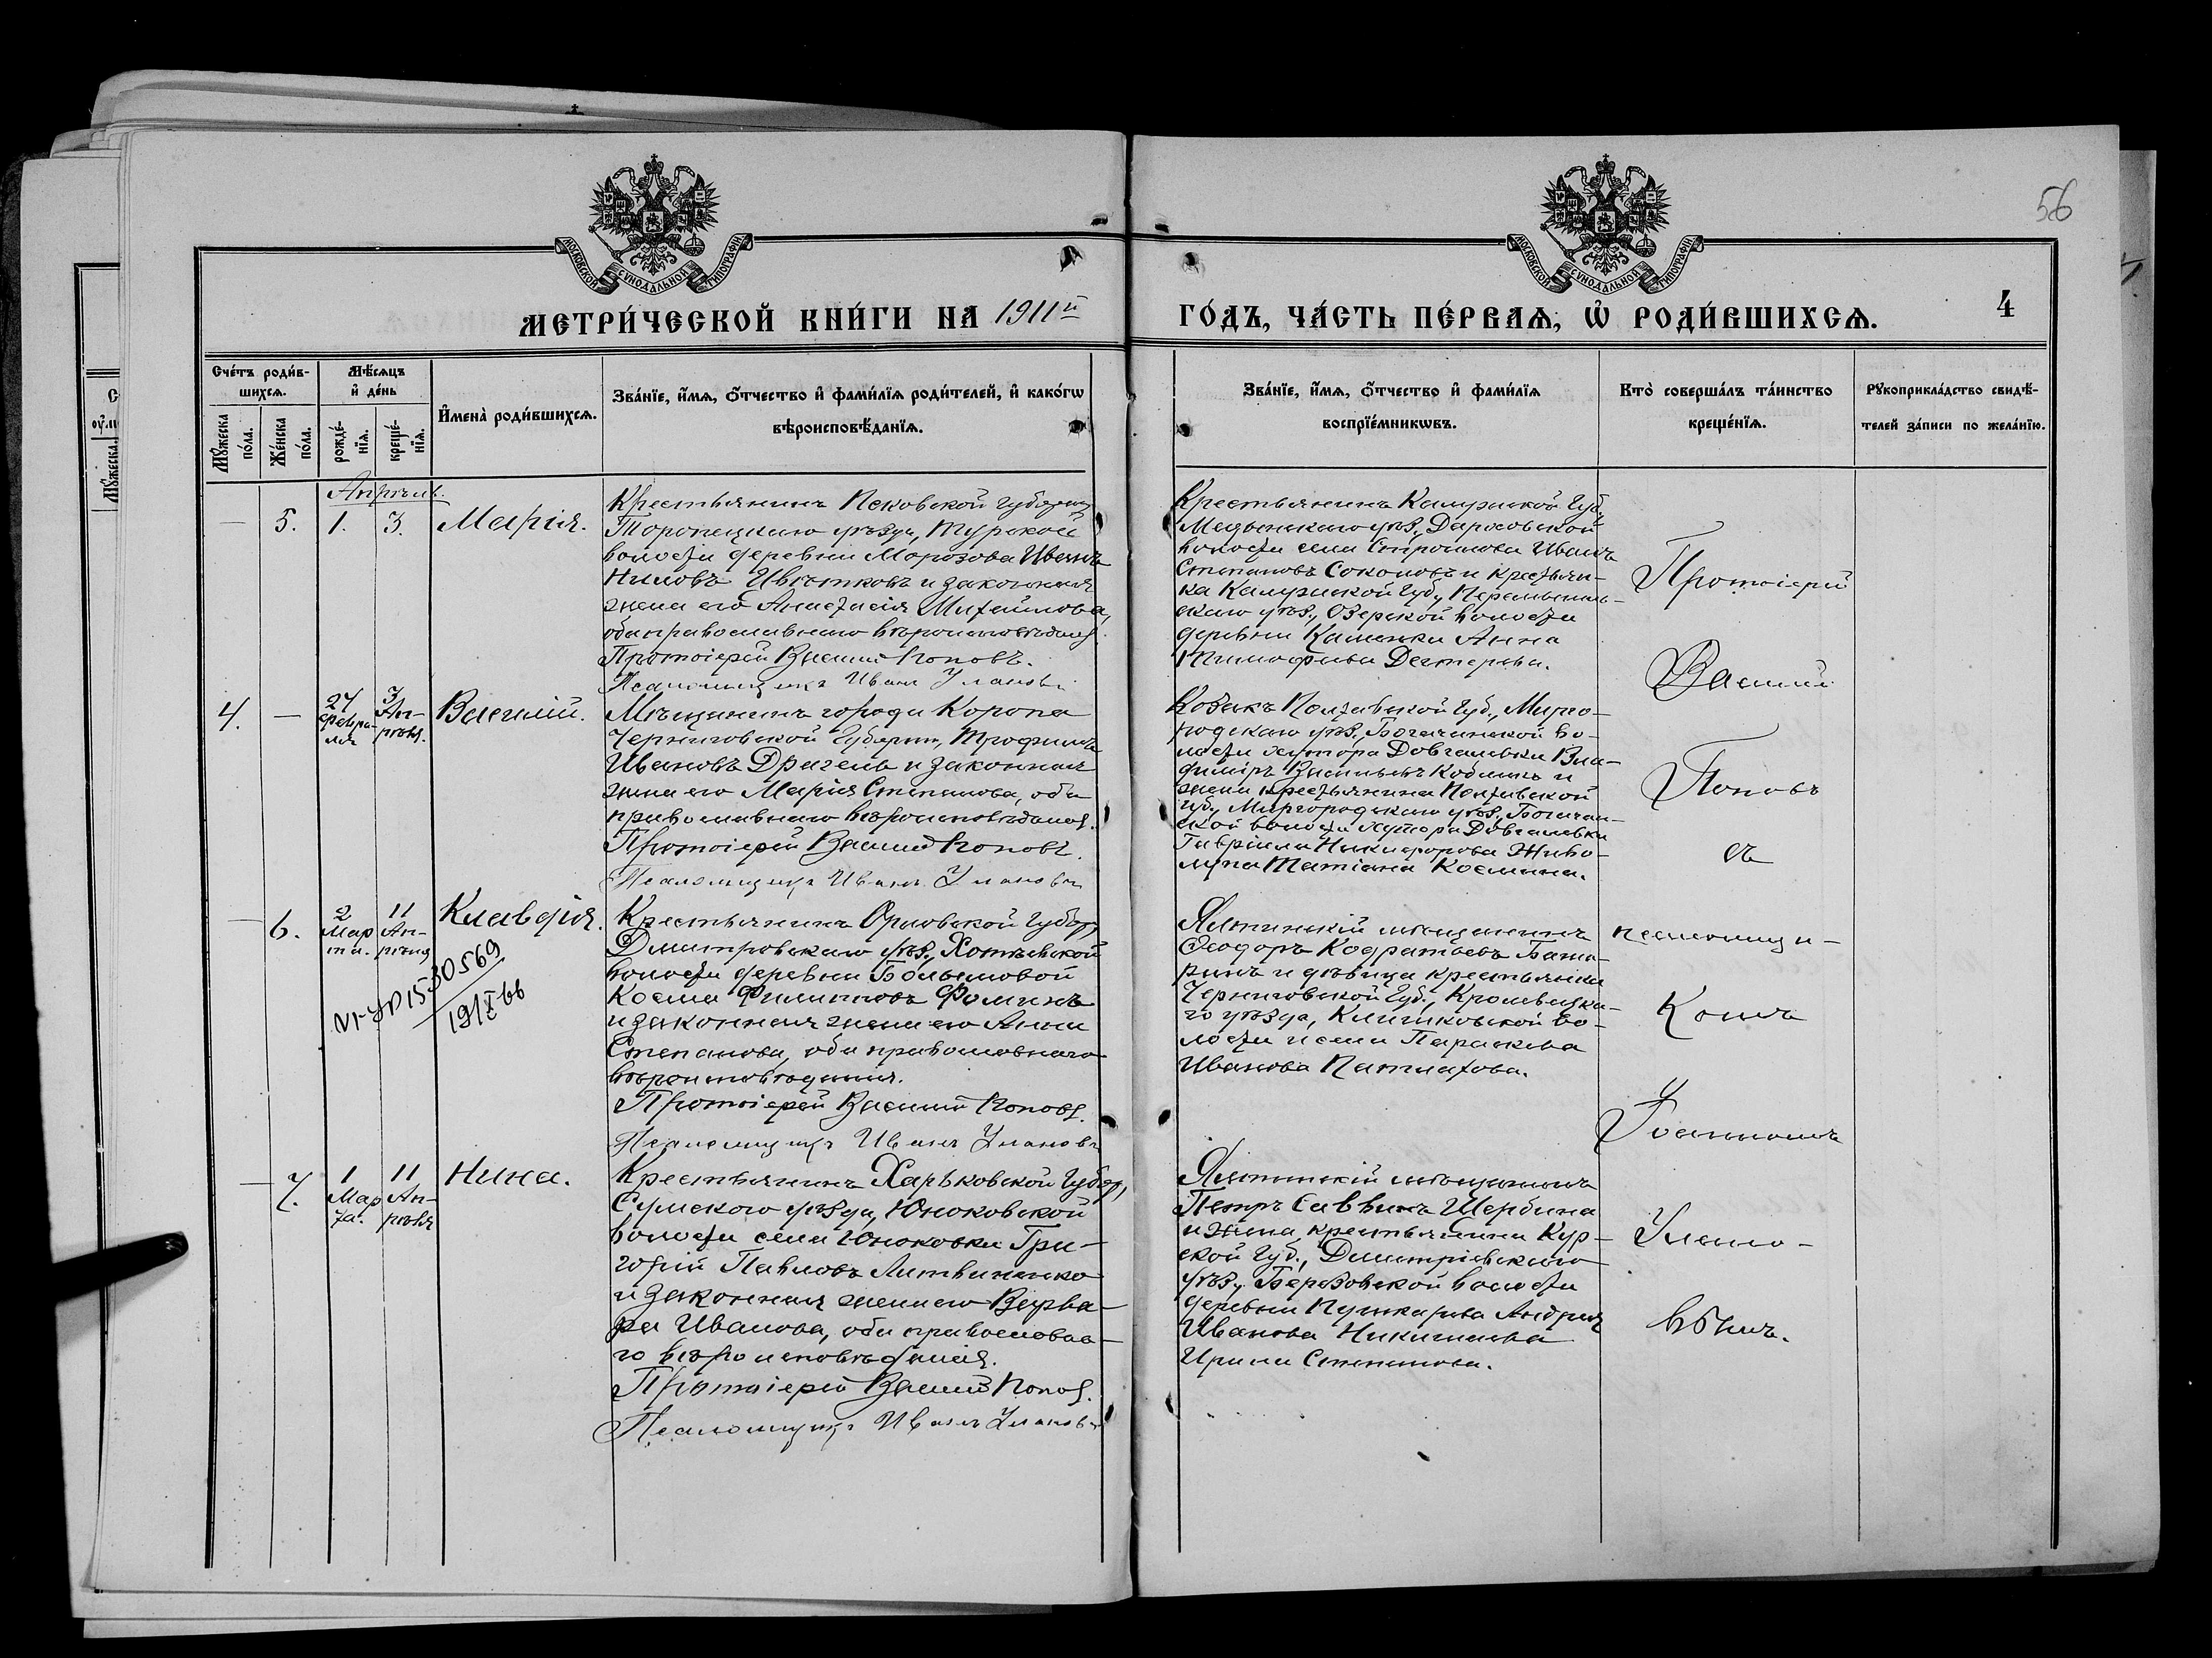 56
МОСКОВСКОЙ СѴНОДАЛЬНОЙ ТИПОГРАФІИ
МОСКОВСКОЙ СѴНОДАЛЬНОЙ ТИПОГРАФІИ
МЕТРИ́ЧЕСКОЙ КНИ́ГИ НА 1911й
ГО́ДЪ, ЧА́СТЬ ПЕ́РВАѦ, Ѡ҆ РОДИ́ВШИХСѦ.
4
Сче́тъ роди́в-
шихсѧ.
Мѹ́жеска по́ла.
Же́нска по́ла.
Мѣ́сѧцъ
и҆ де́нь
рожде́-
нїѧ.
креще́-
нїѧ.
И҆мена̀ роди́вшихсѧ.
Зва́нїе, и҆́мѧ, ѻ҆́тчество и҆ фами́лїѧ роди́телей, и҆ како́гѡ
вѣроисповѣ́данїѧ.
Зва́нїе, и҆́мѧ, ѻ҆́тчество и҆ фами́лїѧ
воспрїе́мникѡвъ.
Кто̀ соверша́лъ та́инство
креще́нїѧ.
Рꙋкоприкла́дство свидѣ́-
телей за́писи по жела́нїю.
Апрѣль.
5. 1. 3. Марія.
Крестьянинъ Псковской губерніи
Торопецкаго уѣзда, Турской
волости деревни Морозова Иванъ
Ниловъ Цвѣтковъ и законная
жена его Анастасія Михайлова,
оба православнаго вѣроисповѣданія.
Протоіерей Василій Поповъ.
Псаломщикъ Иванъ Улановъ
Крестьянинъ Калужской Губ.,
Медынскаго уѣз.,
волости села Иванъ
Степановъ Соколовъ и крестьян-
ка Калужской Губ., Перемышль-
скаго уѣз., Озерской волости
деревни Каменки Анна
Тимофеева Дегтерева.
4. 24
Февра-
ля
3
Ап-
рѣля. Василій.
Мѣщанинъ города Коропа
Черниговской Губерніи, Трофимъ
Ивановъ Дригель и законная
жена его Марія Степанова, оба
православнаго вѣроисповѣданія.
Протоіерей Василій Поповъ.
Псаломщикъ Иванъ Улановъ
Козакъ Полтавской Губ., Мирго-
родскаго уѣз., Богачинской во-
лости хутора Довгалевки Вла-
диміръ Васильевъ и
жена крестьянина Полтавской
Губ., Миргородскаго уѣз., Богачан-
ской волости хутора Довгалевки
Гавріила Никифорова Живо-
лупа Татіана Космина.
6. 2
Мар
та.
11
Ап-
рѣля Клавдія.
1530569
19/X 66
Крестьянинъ Орловской Губер,
Дмитровскаго уѣз., Хотьевской
волости деревни
Косма Филиповъ Фоминъ
и законная жена его Анна
Степанова, оба православнаго
вѣроисповѣданія.
Протоіерей Василій Поповъ.
Псаломщикъ Иванъ Улановъ
Ялтинскій мѣщанинъ
Ѳеодоръ Кодратьевъ Бату-
ринъ и дѣвица крестьянка
Черниговской Губ., Кролевецка-
го уѣзда, Клишковской во-
лости и села Параскева
Иванова
7. 1
Мар
та.
11
Ап-
рѣля Нина.
Крестьянинъ Харьковской Губер,
Сумскаго уѣзда, Юнаковской
волости села Юнаковки Гри-
горій Павловъ Литвиненко
и законная жена его Варва-
ра Иванова, оба православна-
го вѣроисповѣданія.
Протоіерей Василій Попов.
Псаломщикъ Иванъ Улановъ
Ялтинскій мѣщанинъ
Петръ Саввинъ Щербина
и жена крестьянина Кур-
ской Губ., Дмитріевскаго
уѣз., Березовской волости
деревни Пушкарева Андрея
Иванова Никишаева
Ирина Степанова.
Протоіерей
Василій
Поповъ
съ
псаломщи-
комъ
Іоанномъ
Улано-
вымъ.